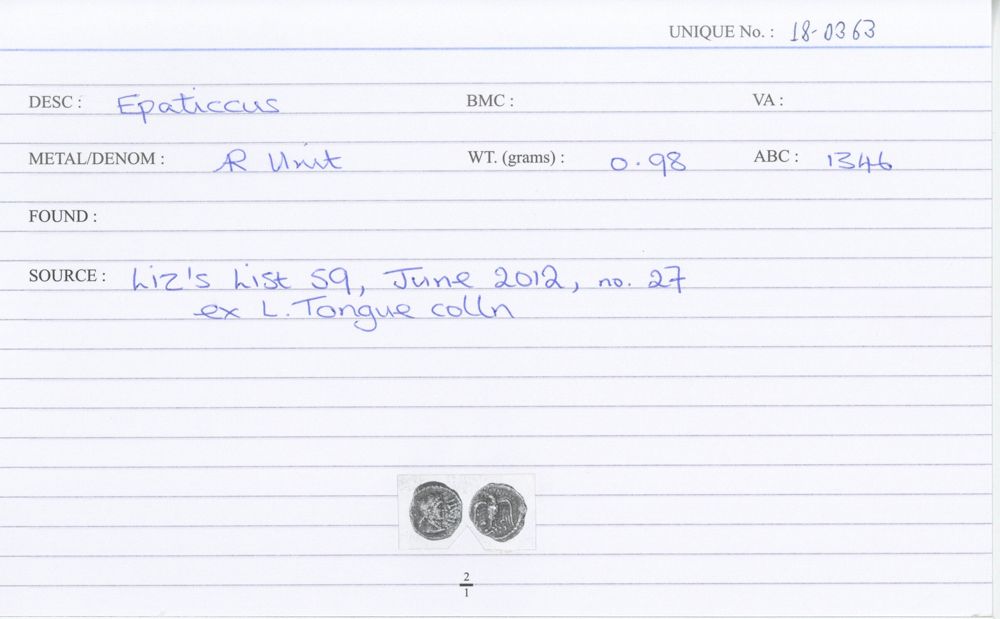 UNIQUE No. : 18-0363
DESC : Epaticcus BMC : VA :
METAL/DENOM : AR Unit WT. (grams) : 0.98 ABC : 1346
FOUND :
SOURCE : Liz's List 59, June 2012, no. 27
ex L. Tongue colln
2
1